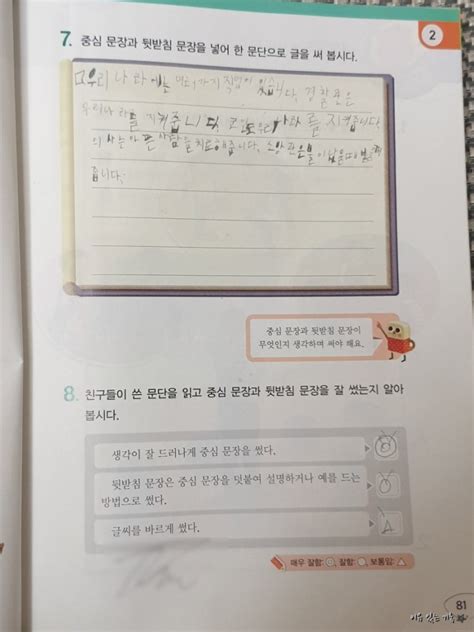 2
7. 중심 문장과 뒷받침 문장을 넣어 한 문단으로 글을 써 봅시다.
우리 나라에는 직업이 있습니다. 경찰관은
지켜줍니다. 나라를 지켜줍니다.
의사는 아픈 사람을 치료해줍니다. 소방관은 불이 났을때
줍니다.
중심 문장과 뒷받침 문장이
무엇인지 생각하며 써야 해요.
8. 친구들이 쓴 문단을 읽고 중심 문장과 뒷받침 문장을 잘 썼는지 알아
봅시다.
생각이 잘 드러나게 중심 문장을 썼다.
뒷받침 문장은 중심 문장을 덧붙여 설명하거나 예를 드는
방법으로 썼다.
글씨를 바르게 썼다.
매우 잘함: ◎, 잘함: ○, 보통임: △
81